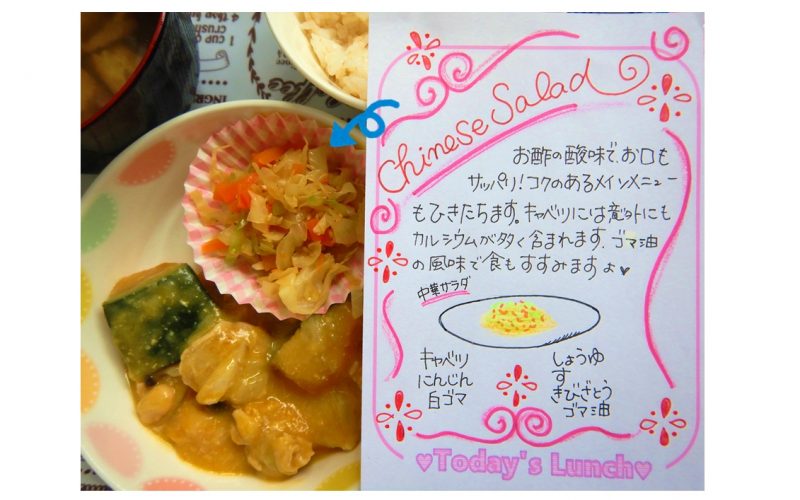 Chinese Salad
お酢の酸味で、お口も
サッパリ！コクのあるメインメニュー
もひきたちます。キャベツには意外にも
カルシウムが多く含まれます。ゴマ油
の風味で食もすすみますよ♥
中華サラダ
キャベツ
にんじん
白ゴマ
しょうゆ
す
きびざとう
ゴマ油
♥Today's Lunch♥